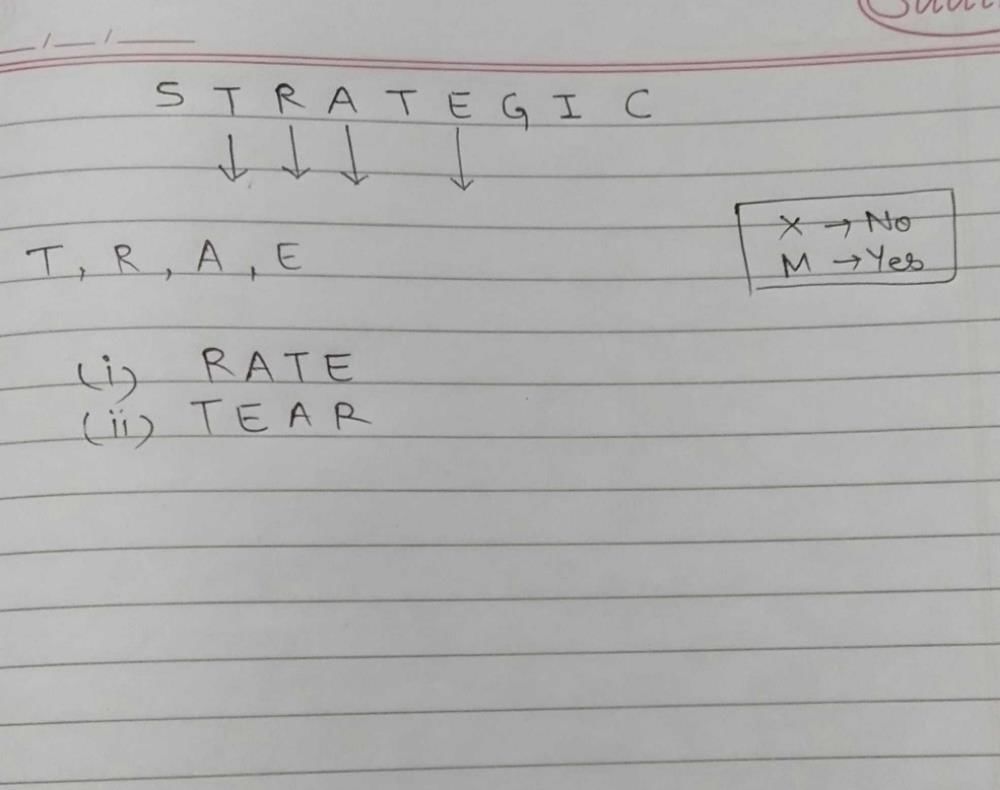 S T R A T E G I C
↓ ↓ ↓ ↓
T, R, A, E
X → No
M → Yes
(i) RATE
(ii) TEAR